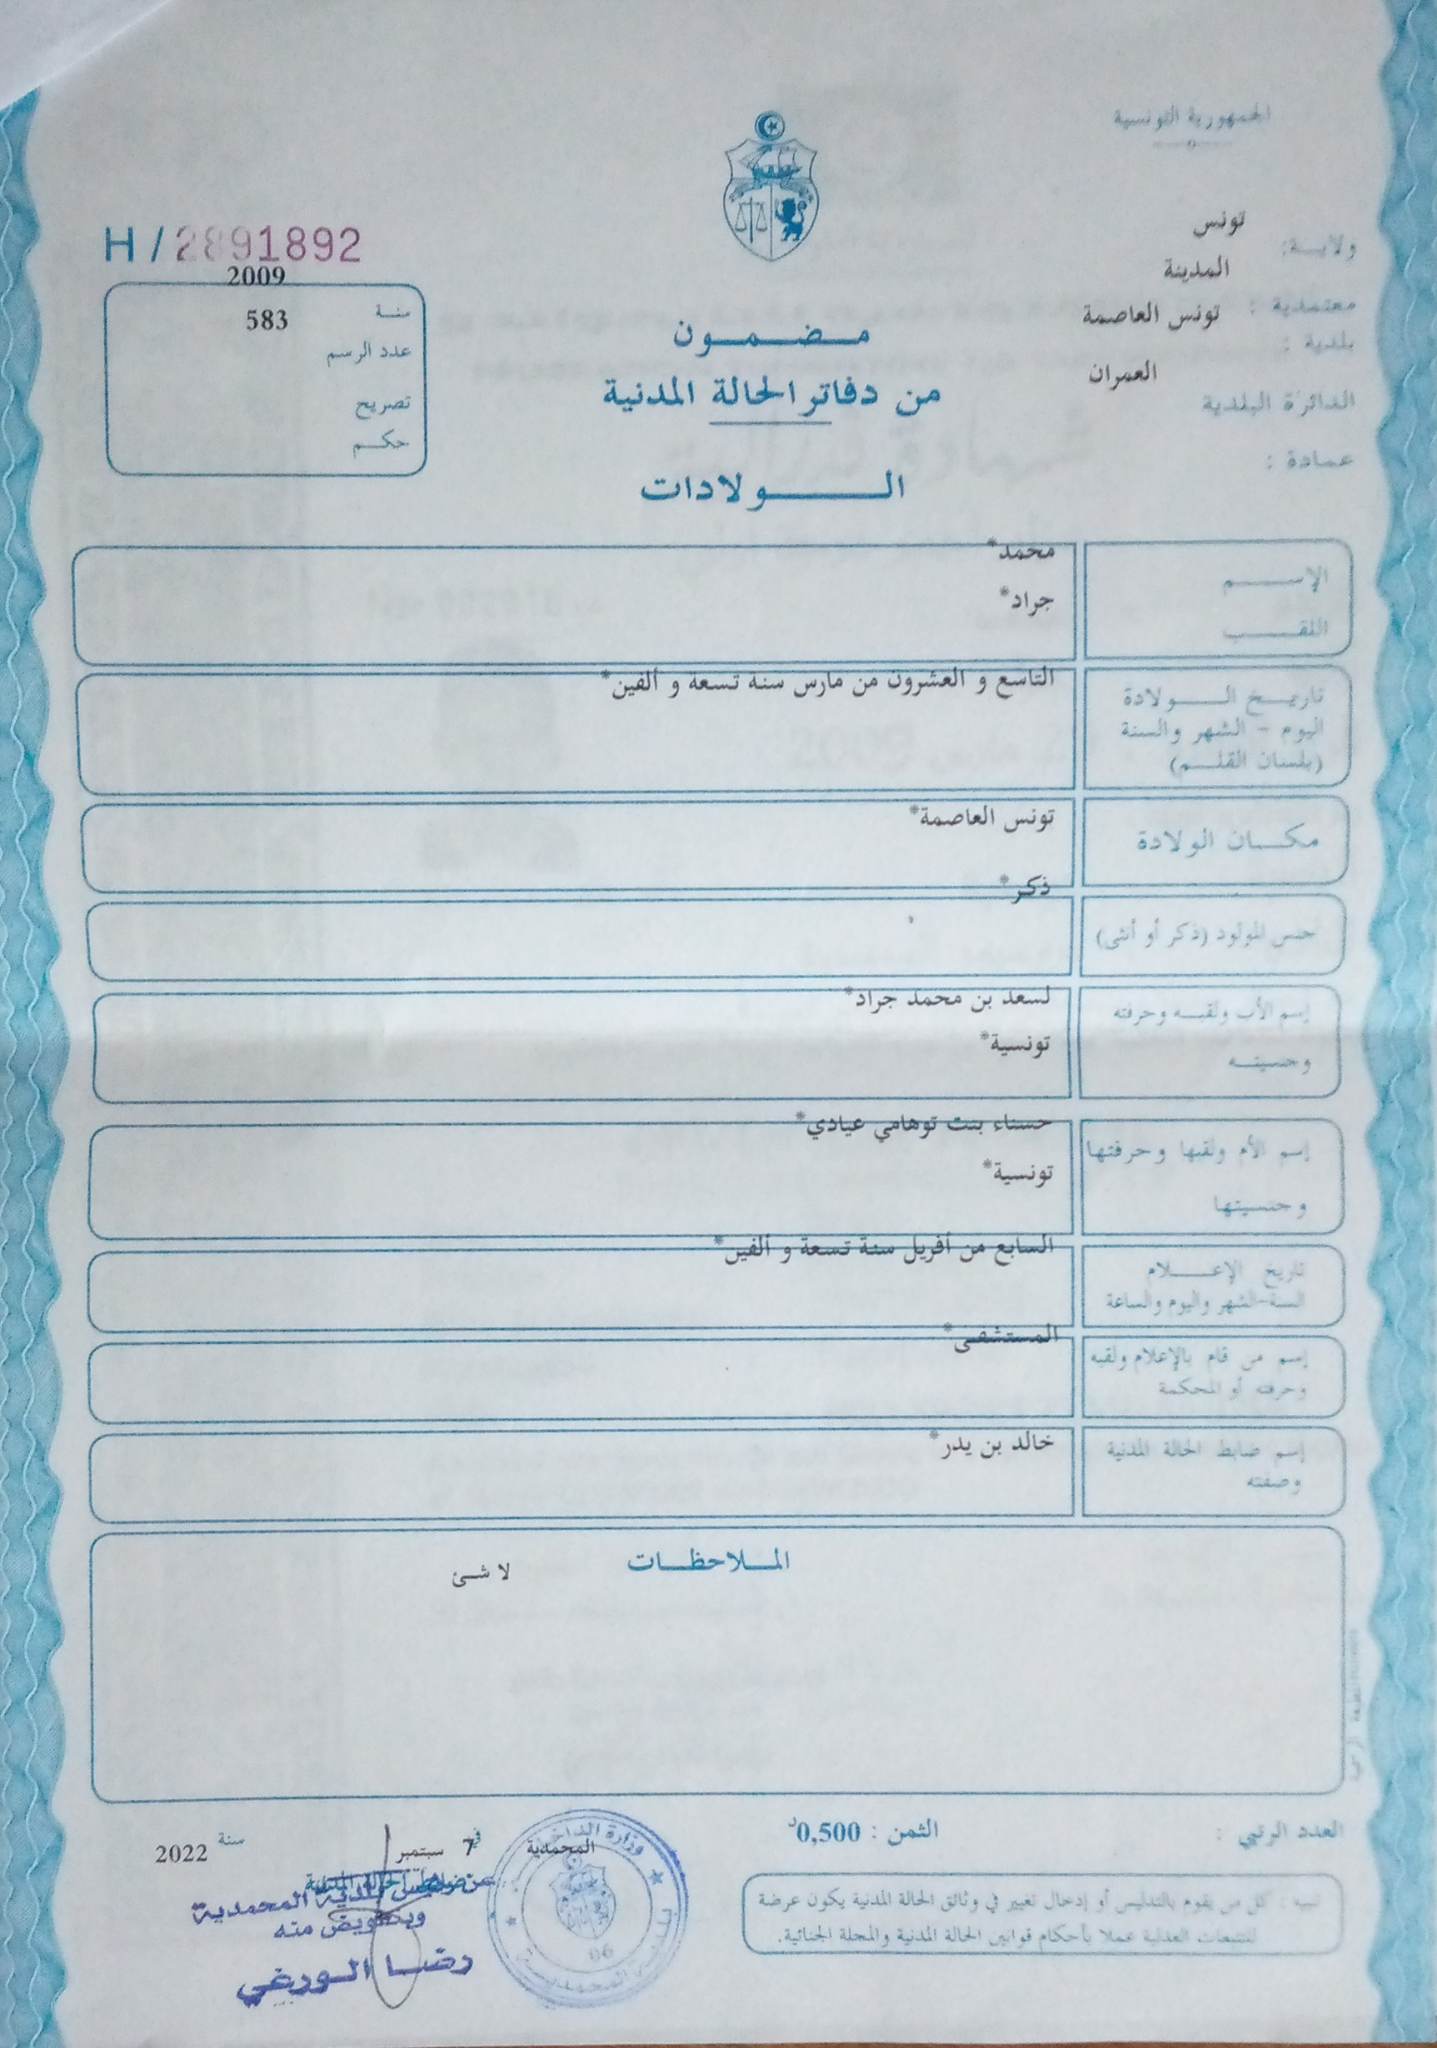 الجمهورية التونسية
ولايـــة: تونس
معتمدية : المدينة
بلدية : تونس العاصمة
الدائرة البلدية العمران
عمادة :
H / 2891892
2009
سنـة
583
عدد الرسم
تصريح
حكـم
مـضـمـون
من دفاتر الحالة المدنية
الـــولادات
الإســـم محمد*
اللقـــب جراد*
تاريـخ الـــولادة التاسع و العشرون من مارس سنة تسعة و ألفين*
اليوم - الشهر والسنة
(بلسان القلـم)
مكـان الولادة تونس العاصمة*
جنس المولود (ذكر أو أنثى) ذكر*
إسم الأب ولقبـه وحرفته لسعد بن محمد جراد*
وجنسيتـه تونسية*
إسم الأم ولقبها وحرفتها حسناء بنت توهامي عيادي*
وجنسيتها تونسية*
تاريخ الإعـــلام السابع من أفريل سنة تسعة و ألفين*
السنة-الشهر واليوم والساعة
إسم من قام بالإعلام ولقبه المستشفى*
وحرفته أو المحكمة
إسم ضابط الحالة المدنية خالد بن يدر*
وصفته
المـلاحظـات
لا شئ
العدد الرتبي :
الثمن : 0,500د
المحمدية في 7 سبتمبر سنة 2022
ضابط الحالة المدنية
عن رئيس بلدية المحمدية
وبتفويض منه
رضـا الـورغي
وزارة الداخلية
06
تنبيه : كل من يقوم بالتدليس أو إدخال تغيير في وثائق الحالة المدنية يكون عرضة
للتتبعات العدلية عملا بأحكام قوانين الحالة المدنية والمجلة الجنائية.